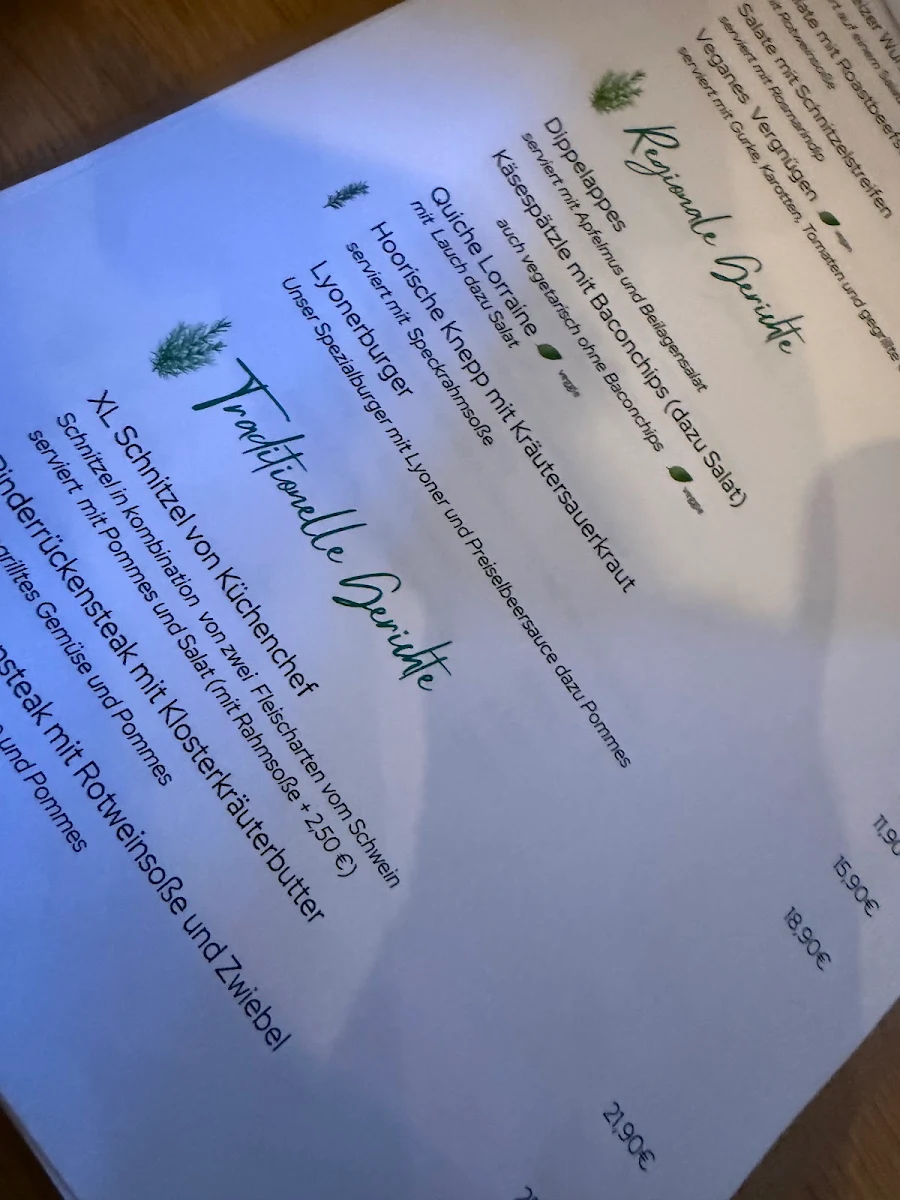 Salate mit Roastbeefs
serviert mit Rotweinsoße
Salate mit Schnitzelstreifen
serviert mit Rosmarindip
Veganes Vergnügen
serviert mit Gurke, Karotten, Tomaten und gegrillte
Regionale Gerichte
Dippelappes
serviert mit Apfelmus und Beilagensalat
Käsespätzle mit Baconchips (dazu Salat)
auch vegetarisch ohne Baconchips veggie
Quiche Lorraine veggie
mit Lauch dazu Salat
Hoorische Knepp mit Kräutersauerkraut
serviert mit Speckrahmsoße
Lyonerburger
Unser Spezialburger mit Lyoner und Preiselbeersauce dazu Pommes
11,90
15,90€
18,90€
Traditionelle Gerichte
XL Schnitzel von Küchenchef
Schnitzel in kombination von zwei Fleischarten vom Schwein
serviert mit Pommes und Salat (mit Rahmsoße + 2,50 €)
21,90€
Rinderrückensteak mit Klosterkräuterbutter
grilltes Gemüse und Pommes
nsteak mit Rotweinsoße und Zwiebel
und Pommes